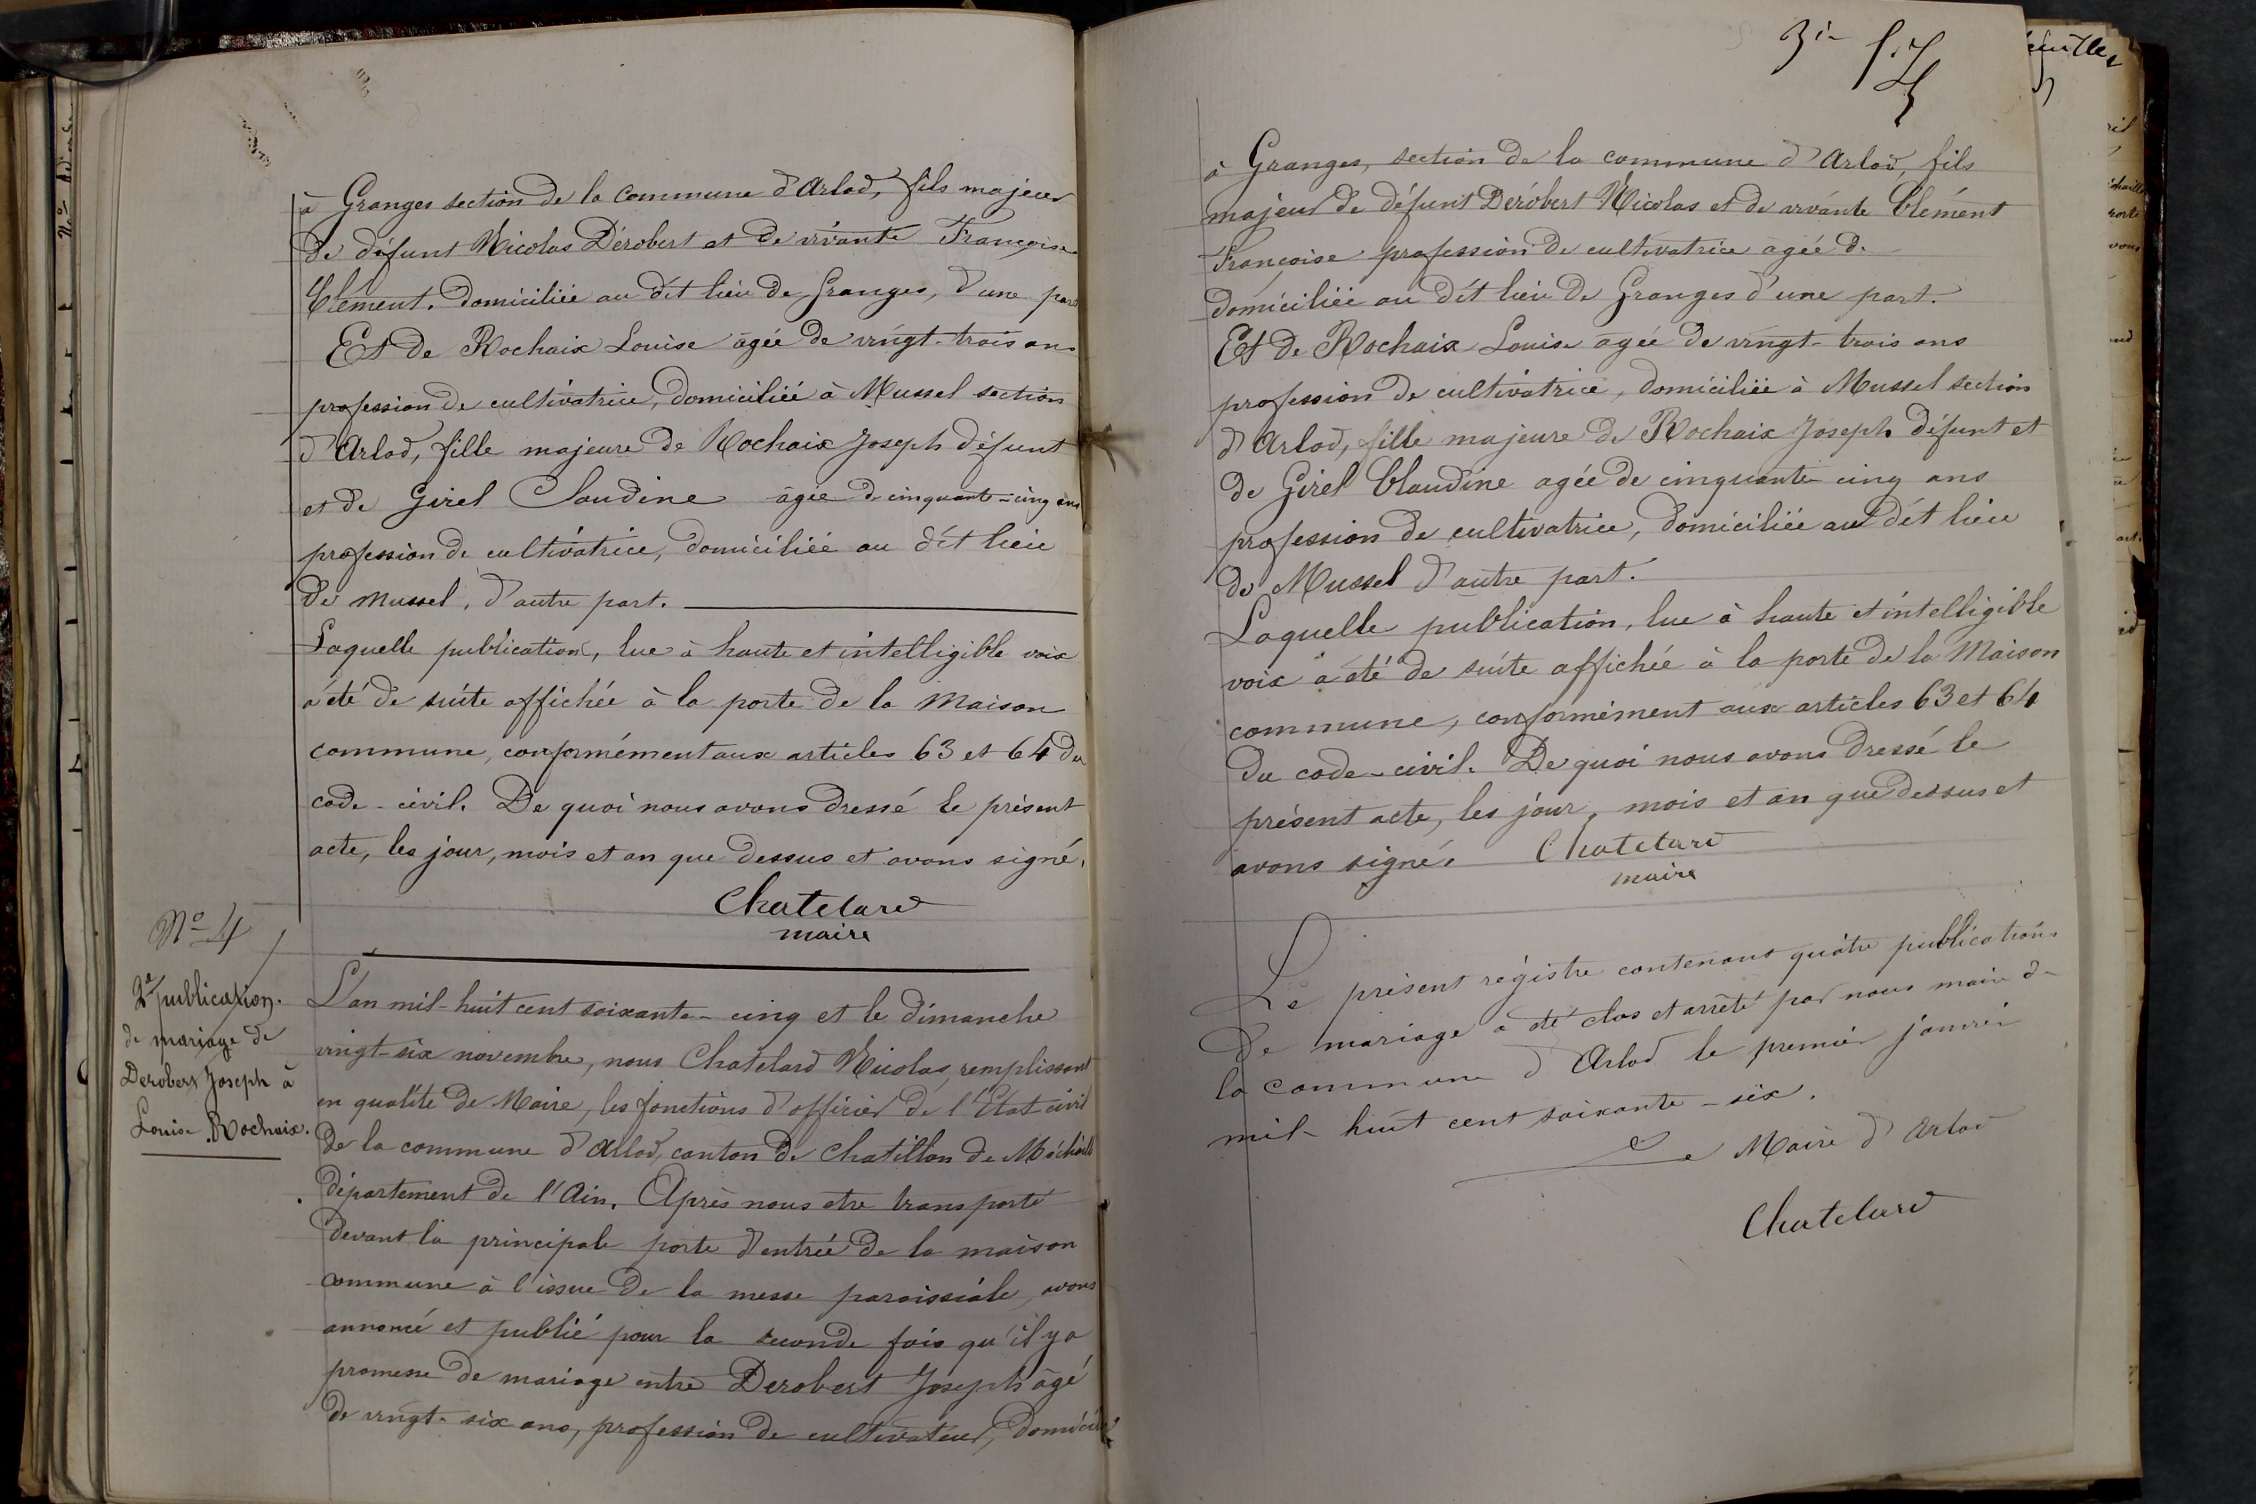 à Granges section de la commune d'Arlod, fils majeur
de défunt Nicolas Dérobert et de vivante Françoise
Clément. Domiciliée au dit lieu de Granges, d'une part
Et de Rochaix Louise âgée de vingt-trois ans
profession de cultivatrice, domiciliée à Mussel section
d'Arlod, fille majeure de Rochaix Joseph défunt
et de Girel Claudine âgée de cinquante-cinq ans
profession de cultivatrice, domiciliée au dit lieu
de Mussel, d'autre part.
Laquelle publication, lue à haute et intelligible voix
a été de suite affichée à la porte de la Maison
commune, conformément aux articles 63 et 64 du
code-civil. De quoi nous avons dressé le présent
acte, les jour, mois et an que dessus et avons signé.
Chatelard
maire
N° 4
2e publication
de mariage de
Derobert Joseph à
Louise Rochaix.
L'an mil-huit cent soixante-cinq et le dimanche
vingt-six novembre, nous Chatelard Nicolas, remplissant
en qualité de Maire, les fonctions d'officier de l'Etat civil
de la commune d'Arlod, canton de Chatillon de Michaille
département de l'Ain. Après nous être transporté
devant la principale porte d'entrée de la maison
commune à l'issue de la messe paroissiale, avons
annoncé et publié pour la seconde fois qu'il y a
promesse de mariage entre Derobert Joseph âgé
de vingt-six ans, profession de cultivateur, domicilié
3e f.
à Granges, section de la commune d'Arlod, fils
majeur de défunt Dérobert Nicolas et de vivante Clément
Françoise profession de cultivatrice âgée de
domiciliée au dit lieu de Granges d'une part.
Et de Rochaix Louise âgée de vingt-trois ans
profession de cultivatrice, domiciliée à Mussel section
d'Arlod, fille majeure de Rochaix Joseph défunt et
de Girel Claudine agée de cinquante cinq ans
profession de cultivatrice, domiciliée au dit lieu
de Mussel d'autre part.
Laquelle publication, lue à haute et intelligible
voix a été de suite affichée à la porte de la Maison
commune, conformément aux articles 63 et 64
du code-civil. De quoi nous avons dressé le
présent acte, les jour, mois et an que dessus et
avons signé. Chatelard
maire
Le présent régistre contenant quatre publications
de mariage a été clos et arrêté par nous maire de
la commune d'Arlod le premier janvier
mil-huit cent soixante-six.
Le Maire d'Arlod
Chatelard